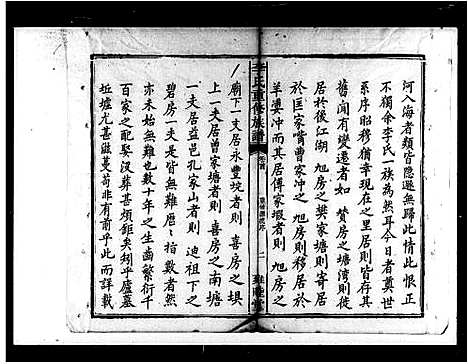 河入海者類皆隱遯無歸此情此恨正
不獨余李氏一族為然耳今日者奠世
系序昭穆猶幸現在之里居則皆存其
舊聞有變遷者如贊房之塘灣則徙
居於後江湖旭房之樊家塘則寄居
於匡家嘴曹家冲而旭房則移居於
羊婆冲而其居傅家堰者則旭房之
李氏重修族譜
卷首
二
雍睦堂
廟下一支居永豐垸者則喜房之垻
上一支居曾家塘者則喜房之南塘
一支居益邑孔家山者則迪祖下之
碧房一支是皆無難歷歷指數者然
亦未始無難也數十年之生齒繁衍千
百家之配娶沒葬甚煩鉅矣矧乎廬墓
坵墟尤甚滋蔓苟非有前乎此而詳載